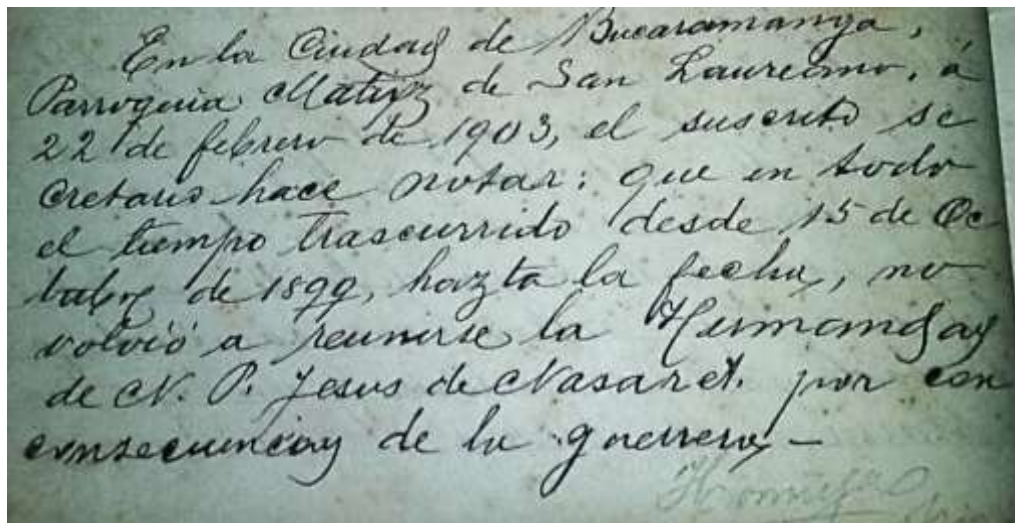 En la Ciudad de Bucaramanga,
Parroquia Matriz de San Laureano, á
22 de febrero de 1903, el suscrito se
cretario hace notar: que en todo
el tiempo trascurrido desde 15 de Oc
tubre de 1899, hazta la fecha, no
volvió a reunirse la Hermandad
de N. P. Jesus de Nasaret. por con
consecuencia de la guerrera, —